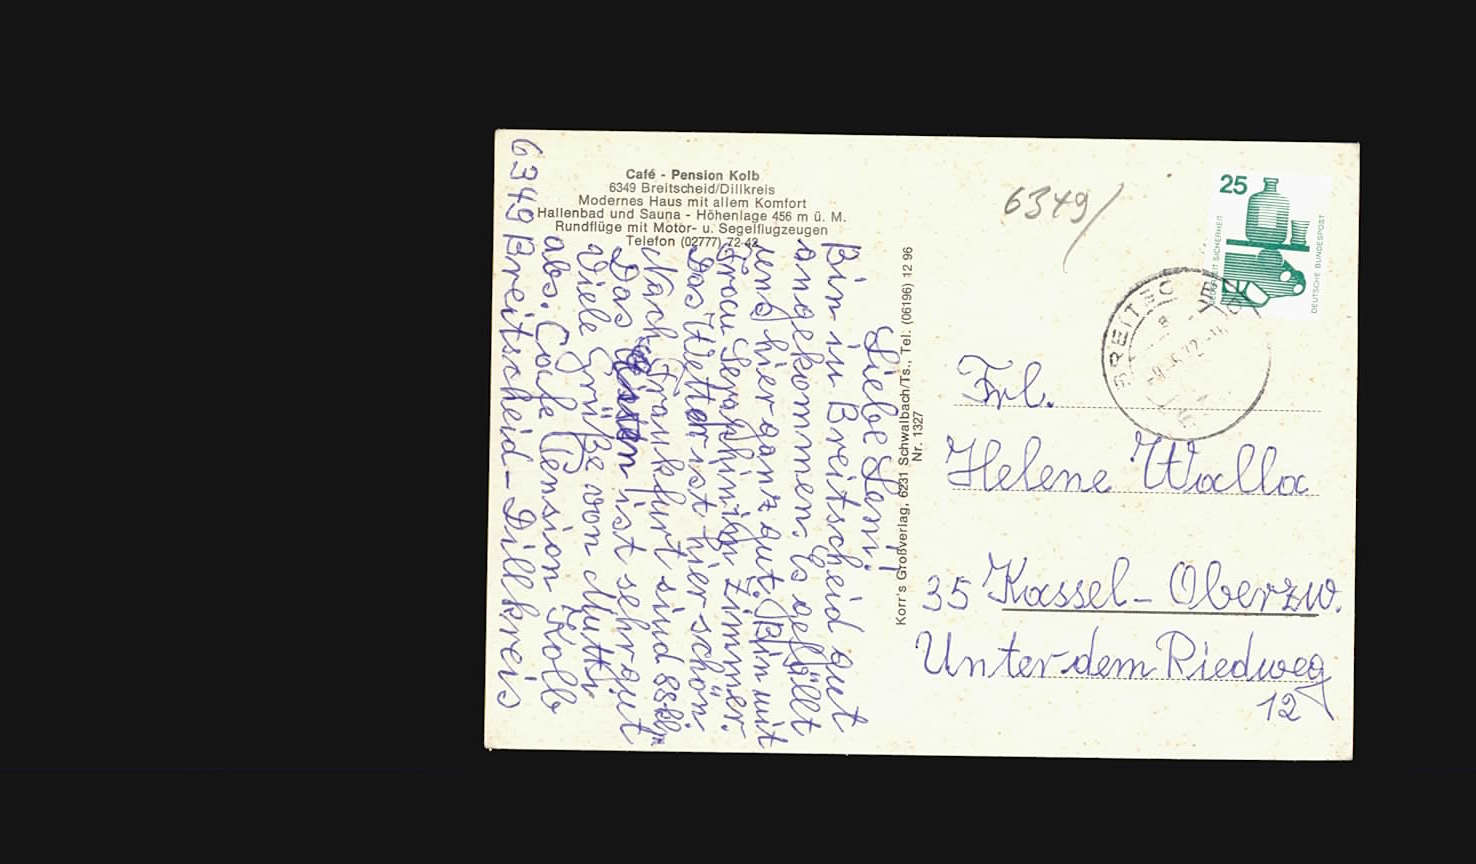 Café - Pension Kolb
6349 Breitscheid/Dillkreis
Modernes Haus mit allem Komfort
Hallenbad und Sauna - Höhenlage 456 m ü. M.
Rundflüge mit Motor- u. Segelflugzeugen
Telefon (02777) 72 42
Liebe Leni!
Bin in Breitscheid gut
angekommen. Es gefällt
uns hier ganz gut. Bin mit
Frau Seraphin im Zimmer.
Das Wetter ist hier schön.
Nach Frankfurt sind 88 klm
Das Essen ist sehr gut
Viele Grüße von Mutti
abs. Cafe Pension Kolb
6349 Breitscheid-Dillkreis
Korr's Großverlag, 6231 Schwalbach/Ts., Tel. (06196) 12 96
Nr. 1327
6349/
25
DEUTSCHE BUNDESPOST
Frl.
Helene Walla
35 Kassel-Oberzw.
Unter dem Riedweg
12